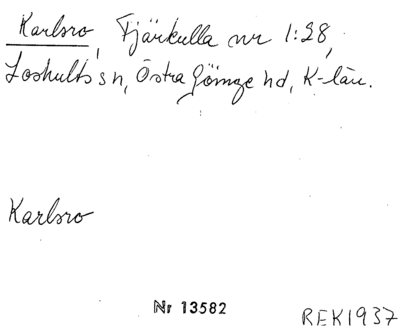 Karlsro, Tjärkulla nr 1:28,
Loshults sn, Östra Göinge hd, K-län.
Karlsro
Nr 13582
REK1937